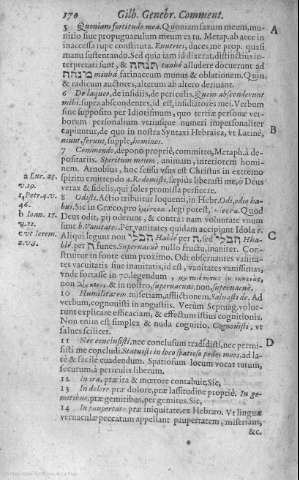 170 Gilb. Genebr. Comment.
5 Quoniam fortitudo mea. Quoniam saxum meum, munitio
siue propugnaculum meum es tu. Metap. ab acce
in inaccessa rupe constituta. Enutries, duces me prop. quasi
manu sustentando. Sed quia iam
terpretati sunt, & allusere docturum ad
minhá farinaceum munus & oblationem. Quin
& radicum authores, alterum ab altero deriuant.
6 De laqueo, de insidiis, de periculis. Quem absconderunt
mihi. supra absconderunt, id est, insidiatores mei. Verbum
siue supposito per Idiotismum, quo tertiæ personæ verborum
personalium vtriusque numeri impersonaliter
capiuntur, de quo in nostra Syntaxi Hebraica, vt Latinè,
aiunt, ferunt, supple, homines.
7 Commendo, depono propriè, committo, Metaph. à depositariis.
Spiritum meum, animum, interiorem hominem.
Arnobius, hoc sensu vsus est Christus in extremo
spiritu emittendo a. Redemisti, sæpius liberasti me, ô Deus
verax & fidelis, qui soles promissa perficere.
a Luc. 23.
8 Odisti. Actio tribuitur loquenti, in Hebr. Odi, odio habui.
Sic Græcè, pro legi potest, Quod
Deus odit, pij oderunt, & contra nam voluntate vnum
sunt b. Vanitates. Per vanitates quidam accipiunt Idola c.
b Ioan. 17.
c vt Ierem.
Aliqui legunt non הבלי Hablé per ה, sed
blé per funes. Superuacuè nullo fructu, inaniter. Construitur
in fonte cum proximo. Odi obseruantes vanitates
vacuitatis siue inanitatis, id est, vanitates vanissimas,
vnde fortasse in 70. legendum,
non & in nostro, superuacuas non, superuacuè.
10 Humilitatem miseriam, afflictionem. Saluasti de. Ad
verbum, cognouisti in angustiis. Verùm Septuag. voluerunt
explicare efficaciam, & effectum istius cognitionis.
Non enim est simplex & nuda cognitio. Cognouisti, vt
salues scilicet.
11 Nec conclusisti, nec conclusum tradidisti, nec permisisti
me concludi. Statuisti in loco spatioso pedes meos, ad latè
& facilè euadendum. Spatiosum locum vocat totum,
securum à periculis liberum.
12 In ira, præ ira & mœrore contabuit, Sic,
13 In dolore præ dolore, præ lassitudine propriè. In gemitibus,
præ gemitibus, per gemitus, Sic,
14 In paupertate præ iniquitate, ex Hebræo. Vt linguæ
vernaculæ peccatum appellant paupertatem, miseriam,
&c.
A
B
C
D